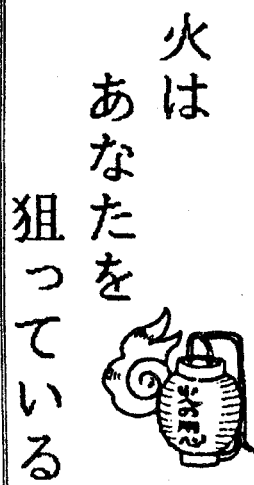 火は
あなたを
狙っている
火の用心